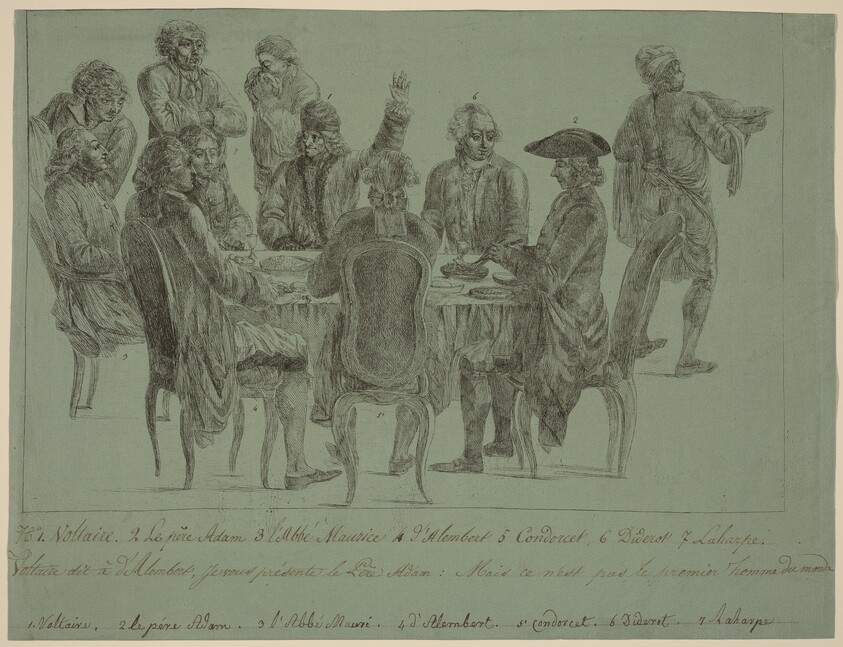 1
6
2
7
3
4
5
No. 1. Voltaire. 2 Le père Adam 3 l'Abbé Maurice 4 d'Alembert 5 Condorcet, 6 Diderot 7 Laharpe.
Voltaire dit à d'Alembert, je vous présente le Père Adam : Mais ce n'est pas le premier homme du monde
1. Voltaire. 2 le père Adam. 3 l'Abbé Mauri. 4 d'Alembert. 5 condorcet. 6 Diderot. 7 Laharpe